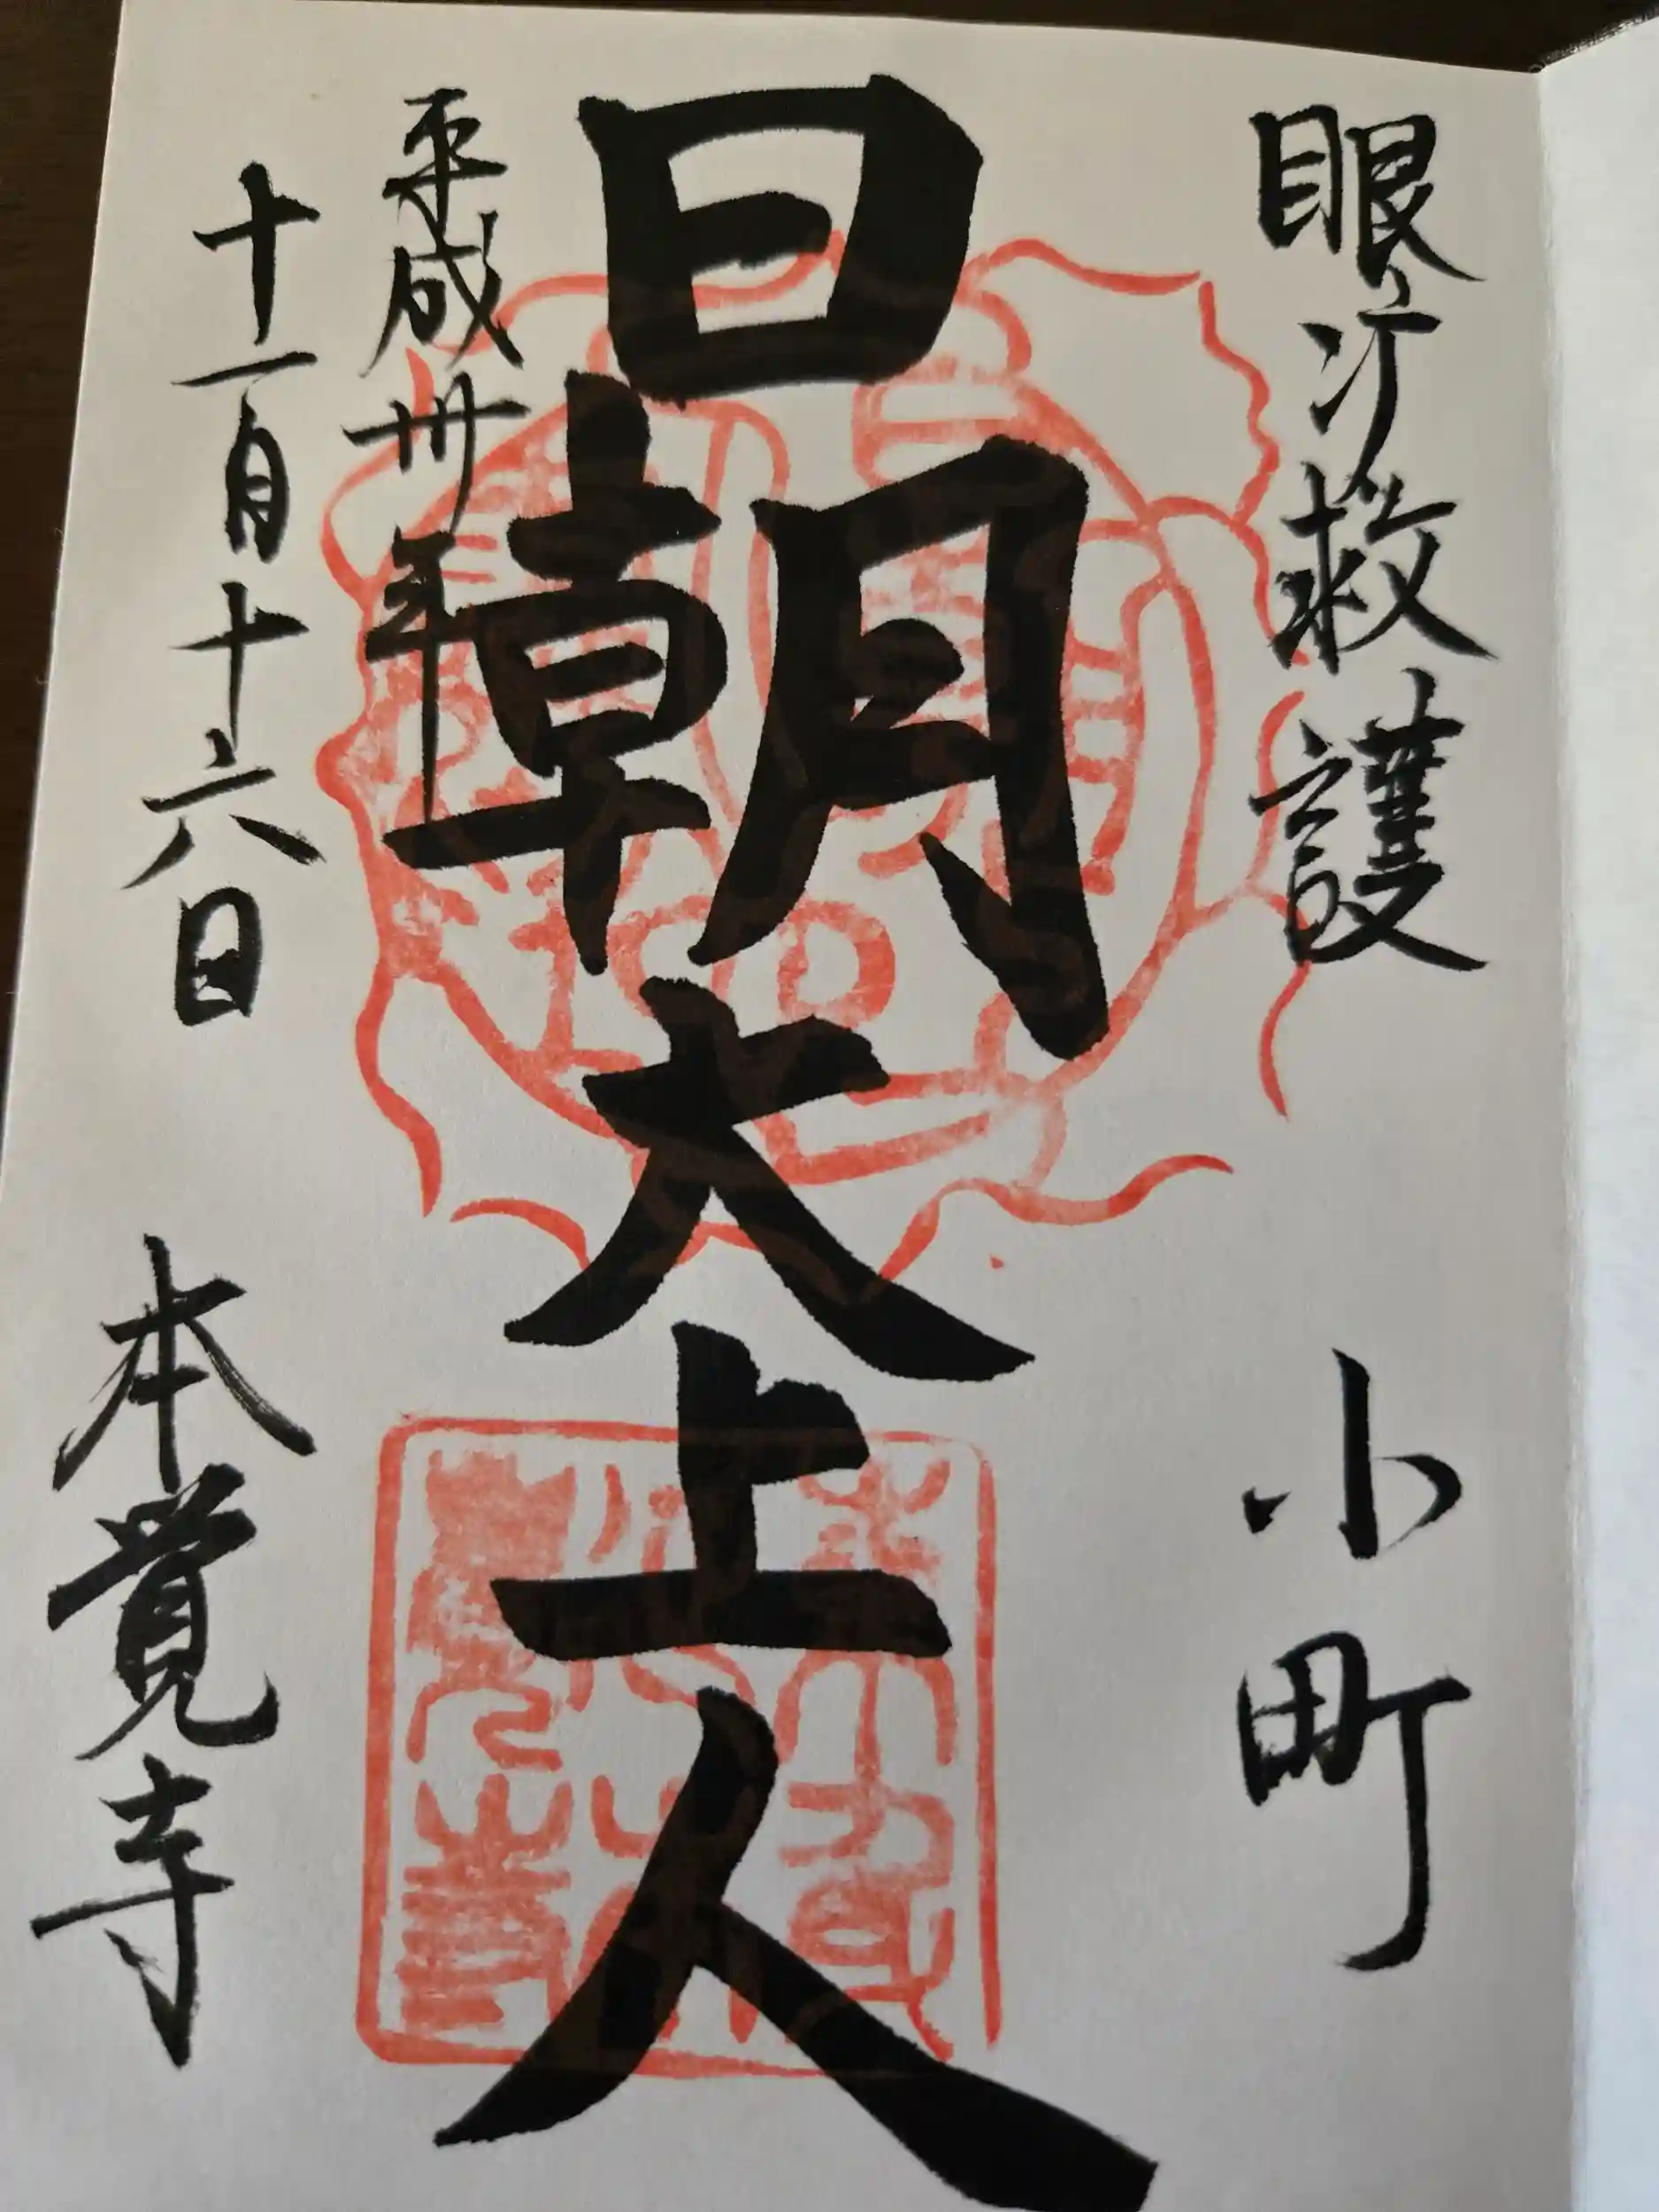 眼疒救護 小町
日朝大上人
平成卅年
十一月十六日 本覚寺